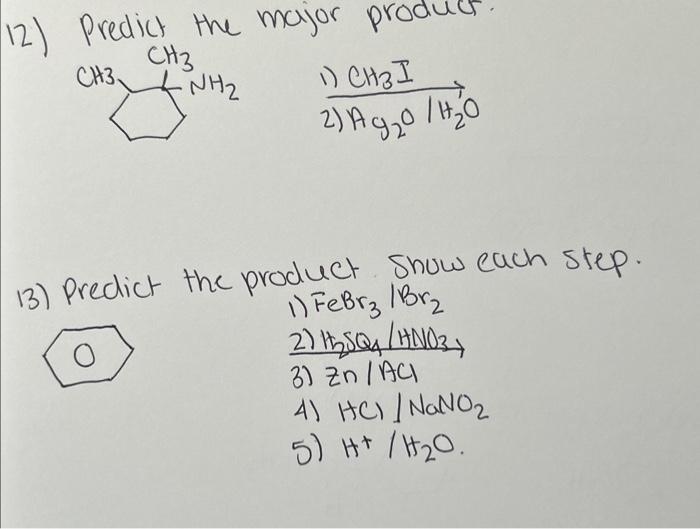 12) Predict the major product.
CH3
CH3
NH2
1) CH3I
2) Ag2O / H2O
13) Predict the product. Show each step.
1) FeBr3 / Br2
2) H2SO4 / HNO3
3) Zn / HCl
4) HCl / NaNO2
5) H+ / H2O.